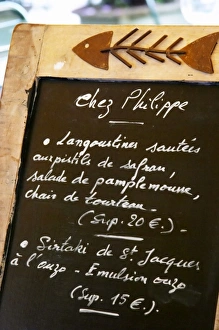 Chez Philippe
• Langoustines sautées
aux pistils de safran,
salade de pamplemousse,
chair de tourteau -
(Sup. 20 €.) -
• Sirtaki de St Jacques
à l'ouzo - Emulsion ouzo
(Sup. 15 €.)